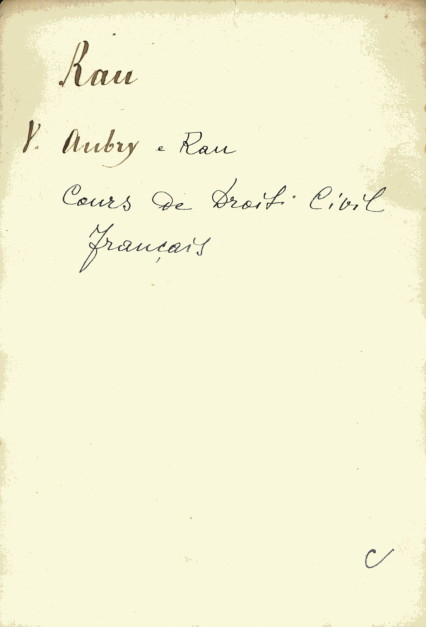 Rau
V. Aubry e Rau
Cours de Droit Civil
Français
C